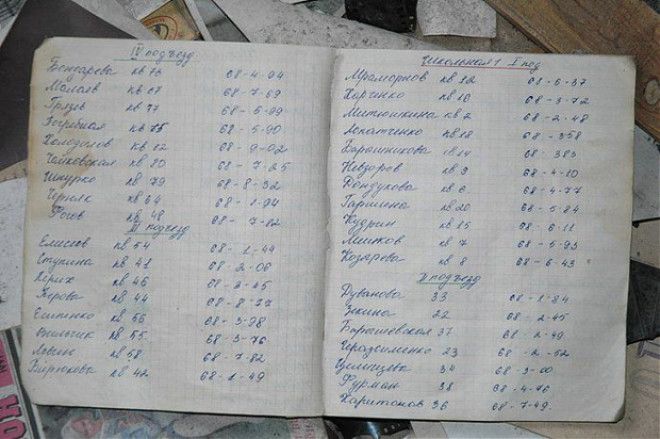 IV подъезд
Бондарева кв 76 68-4-04
Малаев кв 67 68-7-69
Грязев кв 77 68-5-99
Погребная кв 75 68-5-90
Холодилов кв 72 68-9-02
Чайковская кв 80 68-7-25
Шкурко кв 79 68-8-32
Черняк кв 64 68-1-94
Рогов кв 48 68-7-82
III подъезд
Елисеев кв 54 68-1-44
Ступина кв 41 68-2-06
кв 46 68-2-45
Серова кв 44 68-8-77
Ештенко кв 56 68-3-98
кв 55 68-3-76
кв 58 68-7-82
Бирюкова кв 42 68-1-49
Школьная 1 I под
Мраморнов кв 12 68-6-37
Харченко кв 10 68-3-72
Митюшкина кв 2 68-2-48
Лопатченко кв 18 68-358
Хорошникова кв 14 68-383
Невзоров кв 9 68-4-10
Кондукова кв 6 68-4-77
Гаршина кв 20 68-5-84
Кудрин кв 15 68-6-11
Мишков кв 7 68-5-93
Козырева кв 8 68-6-43
II подъезд
Дуванова 33 68-1-84
Зыкина 22 68-2-45
Барашевская 37 68-2-49
Герасименко 23 68-2-52
34 68-3-00
Фурман 38 68-4-76
Харитонов 36 68-7-49
НО